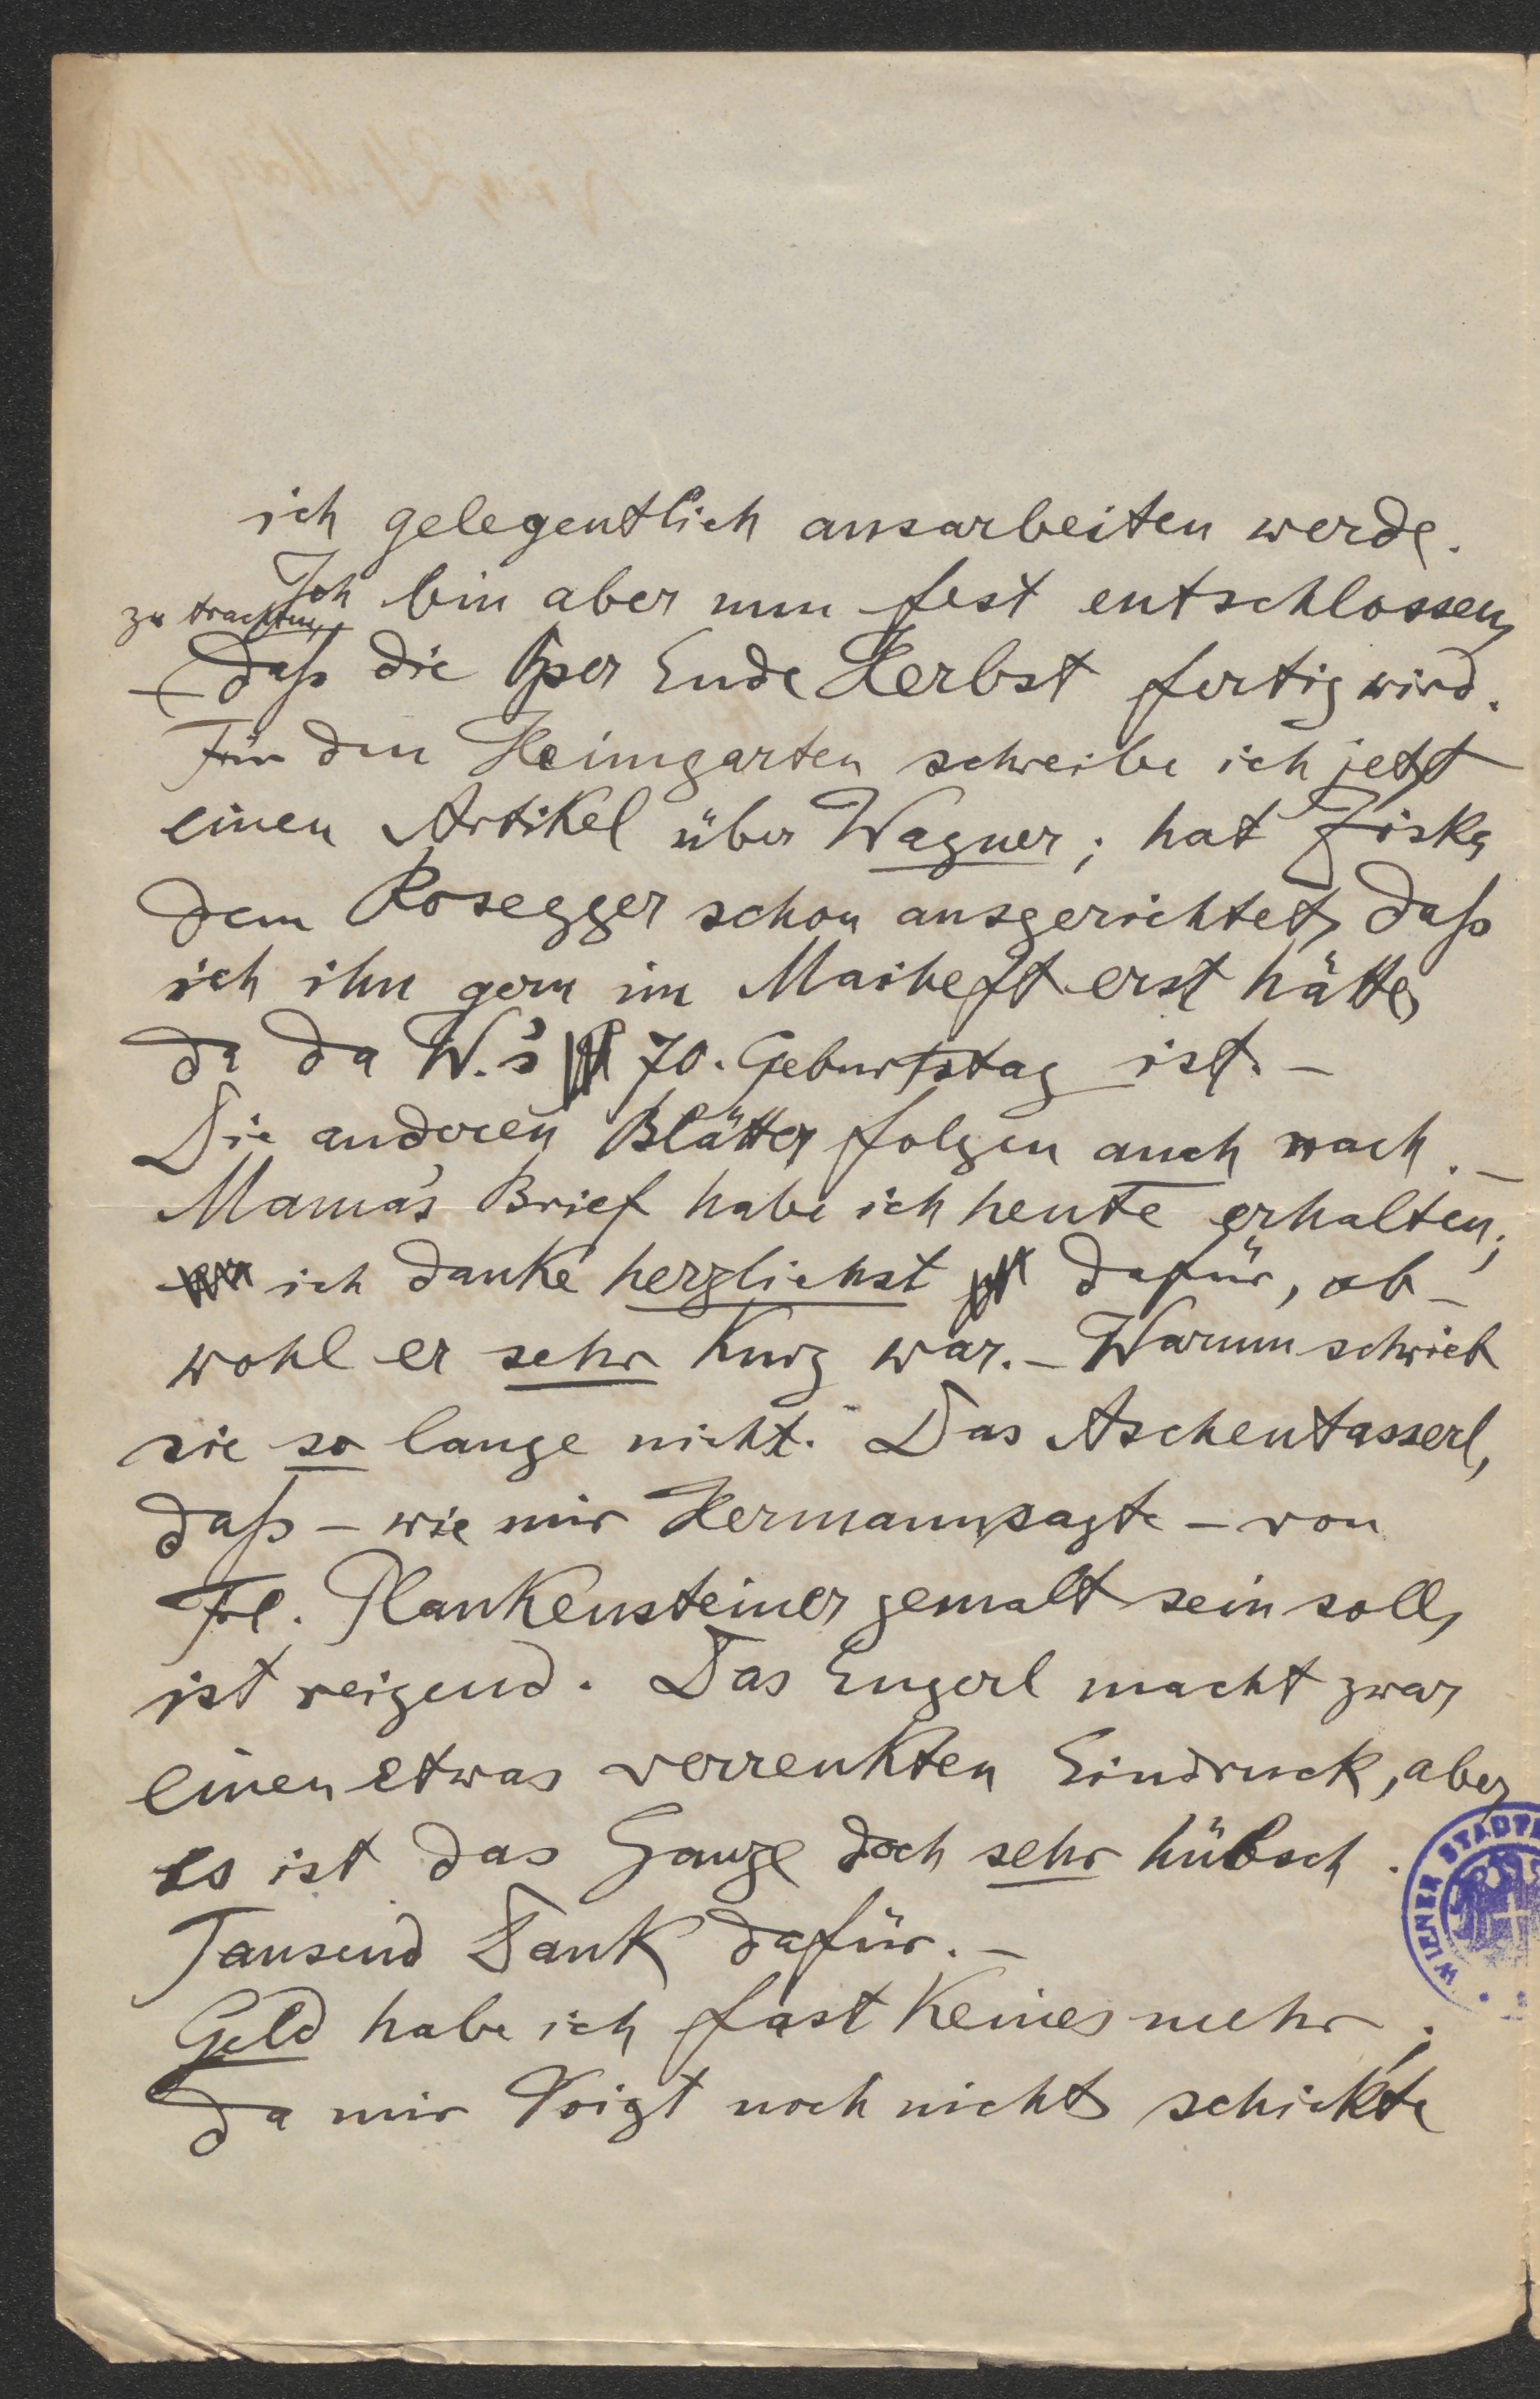 ich gelegentlich ausarbeiten werde.
Ich bin aber nun fest entschlossen,
zu trachten,
daß die Oper Ende Herbst fertig wird.
Für den Heimgarten schreibe ich jetzt
einen Artikel über Wagner; hat Ziska
dem Rosegger schon ausgerichtet, daß
ich ihn gern im Maiheft erst hätte,
da da W.'s 70. Geburtstag ist. –
Die anderen Blätter folgen auch nach. –
Mama's Brief habe ich heute erhalten;
ich danke herzlichst dafür, ob-
wohl er sehr kurz war. – Warum schrieb
sie so lange nicht. Das Aschentasserl,
daß – wie mir Hermann sagte – von
Frl. Plankensteiner gemalt sein soll,
ist reizend. Das Engerl macht zwar
einen etwas verrenkten Eindruck, aber
es ist das Ganze doch sehr hübsch.
WIENER STADT
Tausend Dank dafür. –
Geld habe ich fast keines mehr,
da mir Voigt noch nichts schickte